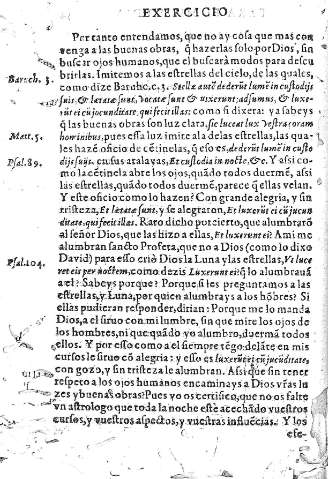 EXERCICIO
Per tanto entendamos, que no ay cosa que mas con
venga a las buenas obras, q̃ hazerlas solo por Dios, sin
buscar ojos humanos, que el buscarà modos para descu
brirlas. Imitemos a las estrellas del cielo, de las quales,
Baruch. 3.
como dize Baruhc. c. 3. Stellæ autē dederūt lumē in custodijs
suis & lætatæ sunt, vocatæ sunt & dixerunt; adsumus, & luxe-
rūt ei cū jucunditate, qui fecit illas: como si dixera: ya sabeys
q̃ las buenas obras son luz clara, sic luceat lux vestra coram
Matt. 5.
hominibus, pues essa luz imite a la de las estrellas, las qua-
les hazē oficio de cētinelas, q̃ eso es, dederūt lumē in custo
Psal. 89.
dijs suis; en sus atalayas, Et custodia in nocte, &c. Y assi co-
mo la cētinela abre los ojos, quādo todos duermē, assi
las estrellas, quādo todos duermē, parece q̃ ellas velan.
Y este oficio como lo hazen? Con grande alegria, y sin
tristeza, Et lætatæ sunt, y se alegraron, Et luxerūt ei cū jucun
ditate, qui fecit illas. Rato dicho por cierto, que alumbrarō
al señor Dios, que las hizo a ellas, Et luxerunt ei? A mi me
alumbran santo Profeta, que no a Dios (como lo dixo
Psal. 104.
David) para esso criò Dios la Luna y las estrellas, Vt luce
ret eis per noctem, como dezis Luxerunt ei? q̃ lo alumbrauā
a el? Sabeys porque? Porque si les preguntamos a las
estrellas, y Luna, por quien alumbrays a los hōbres? Si
ellas pudieran responder, dirian: Porque me lo manda
Dios, a el siruo con mi lumbre, sin que mire los ojos de
los hombres, ni que quādo yo alumbro, duermā todos
ellos. Y por esso como a el siempre tēgo delāte en mis
cursos le siruo cō alegria: y esso es luxerūt ei cū jucūditate,
con gozo, y sin tristeza le alumbran. Assi que sin tener
respeto a los ojos humanos encaminays a Dios vr̃as lu
zes y buenas obras? Pues yo os certifico, que no os falte
vn astrologo que toda la noche este acechādo vuestros
cursos, y vuestros aspectos, y vuestras influēcias. Y los
ese-